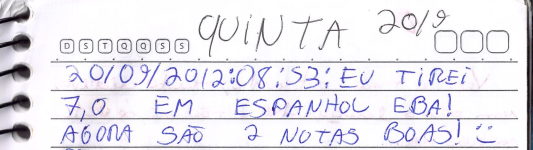 D S T Q Q S S QUINTA 20/9
20/09/2012:08:53: EU TIREI
7,0 EM ESPANHOL EBA!
AGORA SÃO 2 NOTAS BOAS! :)